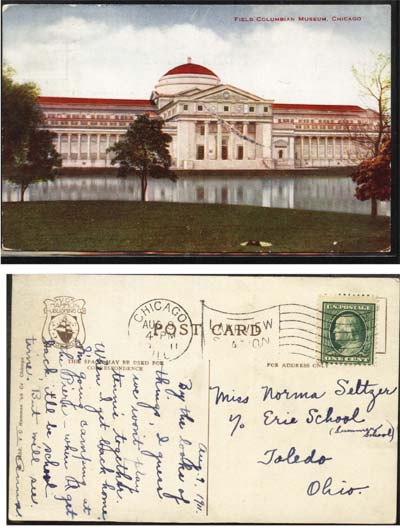 Field Columbian Museum, Chicago
POST CARD
THIS SPACE MAY BE USED FOR
CORRESPONDENCE
FOR ADDRESS ONLY
CHICAGO
AUG
4 PM
11
U.S. POSTAGE
ONE CENT
Aug. 9, '11.
By the looks of
things, I guess
we won't play
tennis together.
When I get back home,
I'm going camping at
La Porte - when I get
back it'll be school
time. But will see.
Miss Norma Seltzer
c/o Erie School
(Summer School)
Toledo
Ohio.